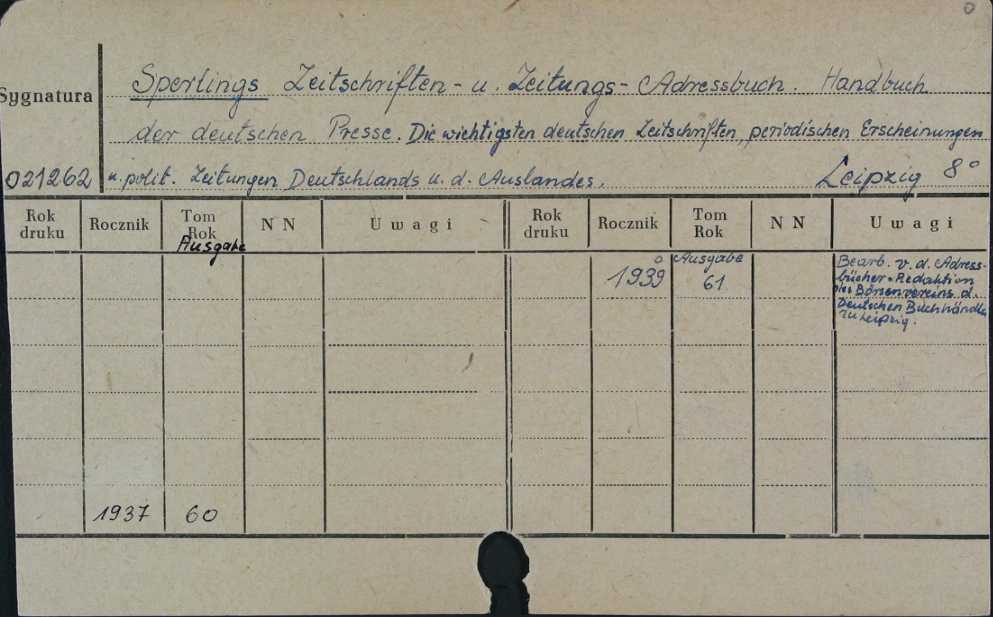 0
Sygnatura
Sperlings Zeitschriften- u. Zeitungs- Adressbuch. Handbuch
der deutschen Presse. Die wichtigsten deutschen Zeitschriften, periodischen Erscheinungen
021262 u. polit. Zeitungen Deutschlands u. d. Auslandes. Leipzig 8°
Rok druku Rocznik Tom Rok NN Uwagi Rok druku Rocznik Tom Rok NN Uwagi
Ausgabe
o Ausgabe Bearb. v. d. Adress-
1939 61 bücher-Redaktion
des Börsenvereins d.
Deutschen Buchhändler
zu Leipzig.
1937 60